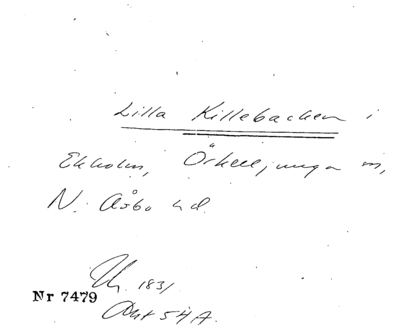 Lilla Killebacken i
Ekholm, Örkelljunga sn,
N. Åsbo hd.
1831
Nr 7479
Akt 54A.